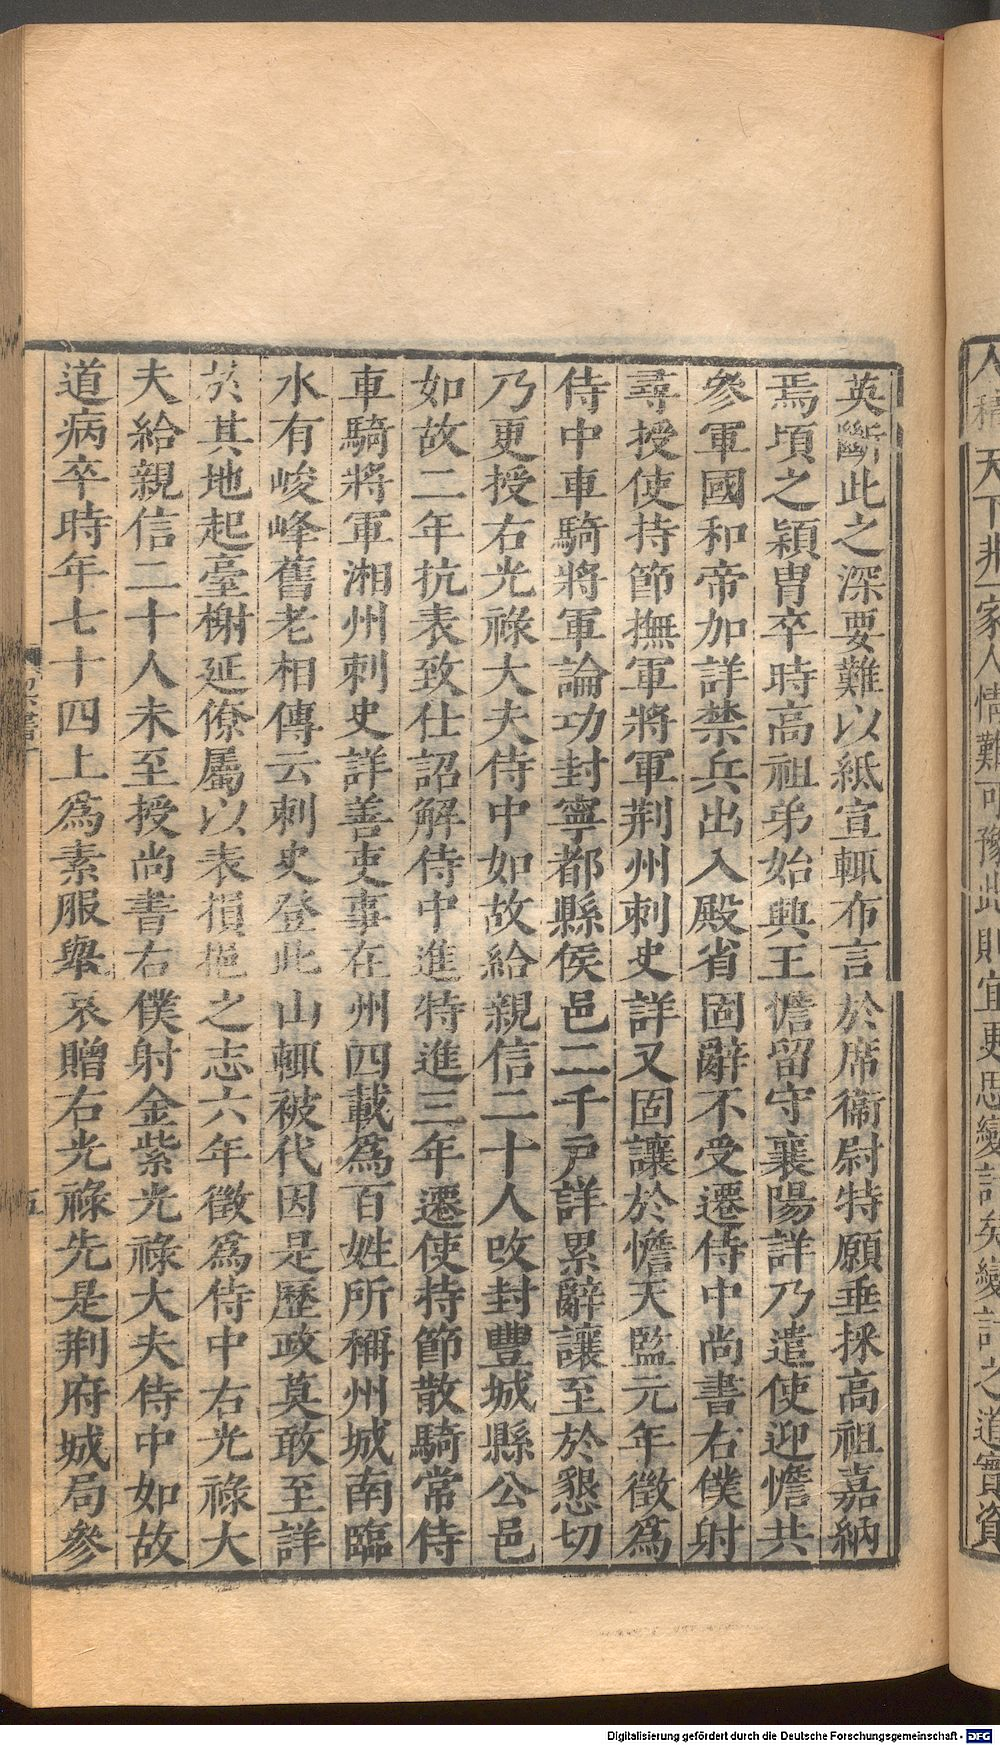 英斷此之深要難以紙宣輒布言於席衞尉特願垂採高祖嘉納
焉頃之穎冑卒時高祖弟始興王憺留守襄陽詳乃遣使迎憺共
參軍國和帝加詳禁兵出入殿省固辭不受遷侍中尚書右僕射
尋授使持節撫軍將軍荆州刺史詳又固讓於憺天監元年徵爲
侍中車騎將軍論功封寧都縣侯邑二千戸詳累辭讓至於懇切
乃更授右光祿大夫侍中如故給親信二十人改封豐城縣公邑
如故二年抗表致仕詔解侍中進特進三年遷使持節散騎常侍
車騎將軍湘州刺史詳善吏事在州四載爲百姓所稱州城南臨
水有峻峰舊老相傳云刺史登此山輒被代因是歷政莫敢至詳
於其地起臺榭延僚屬以表損挹之志六年徵爲侍中右光祿大
夫給親信二十人未至授尚書右僕射金紫光祿大夫侍中如故
道病卒時年七十四上爲素服舉哀贈右光祿先是荆府城局參
天下非一家人情難可豫此則宜更思變計矣變計之道實資
五
Digitalisierung gefördert durch die Deutsche Forschungsgemeinschaft - DFG